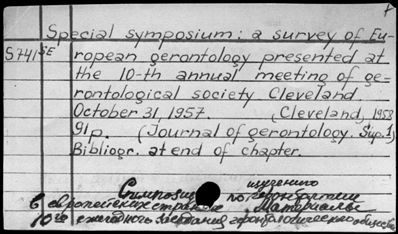 Special symposium: a survey of Eu-
S741 SE ropean gerontology presented at
the 10-th annual meeting of ge-
rontological society Cleveland.
October 31, 1957. (Cleveland, 1958
91p. (Journal of gerontology. Sup.1)
Bibliogr. at end of chapter.
Симпозиум по изучению
в европейских странах. Материалы
10го ежегодного заседания геронтологического общества